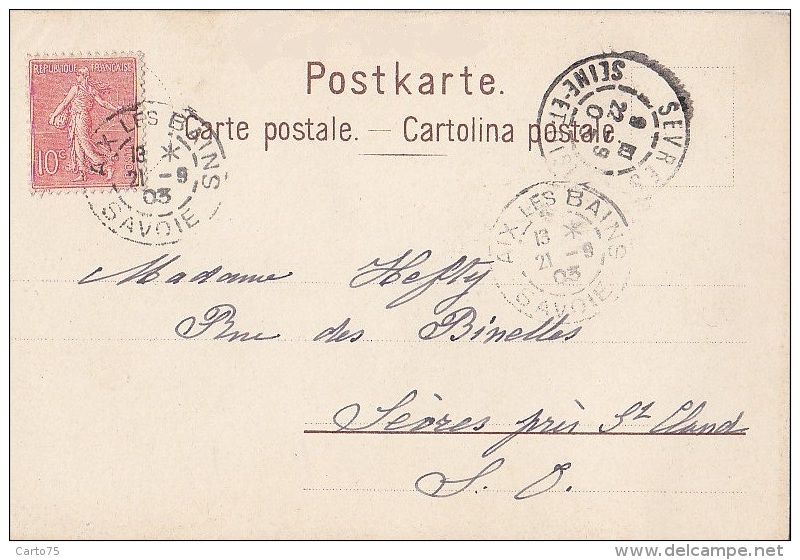 RÉPUBLIQUE FRANÇAISE
10c
Postkarte.
Carte postale. — Cartolina postale.
AIX LES BAINS
13 *
21 -9
03
SAVOIE
SEVRES
SEINE-ET-OISE
22 -9
03
AIX LES BAINS
13 *
21 -9
03
SAVOIE
Madame Hefty
Rue des Binelles
Sèvres près St Cloud
S. O.
Carto75
delcampe.net